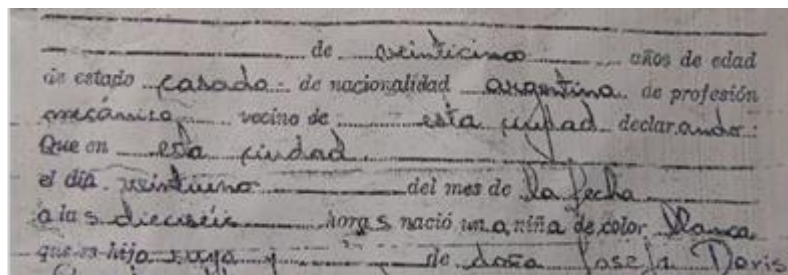 de veinticinco años de edad
de estado casado de nacionalidad argentina de profesión
mecánico vecino de esta ciudad declarando:
Que en esta ciudad
el día veintiuno del mes de la fecha
a las dieciséis horas nació una niña de color blanca
que es hija suya y de doña Josefa Doris